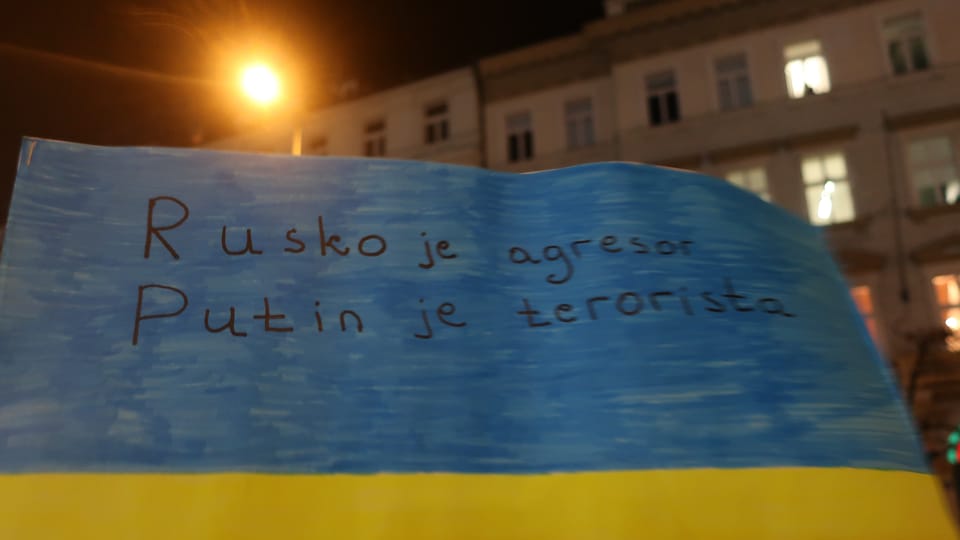 Rusko je agresor
Putin je terorista